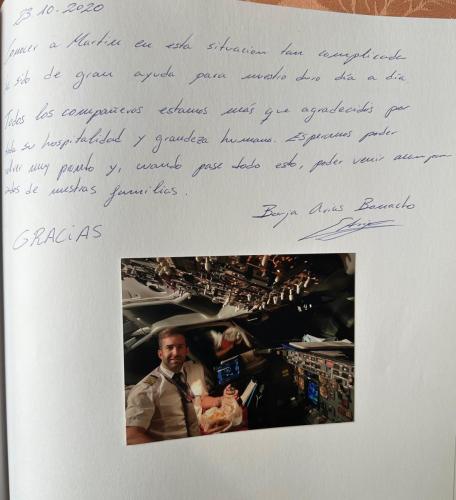 23.10.2020
Conocer a Martin en esta situacion tan complicada
ha sido de gran ayuda para nuestro duro día a día
Todos los compañeros estamos más que agradecidos por
toda su hospitalidad y grandeza humana. Esperamos poder
volver muy pronto y, cuando pase todo esto, poder venir acompañ
ados de nuestras familias.
Borja Arias
GRACIAS